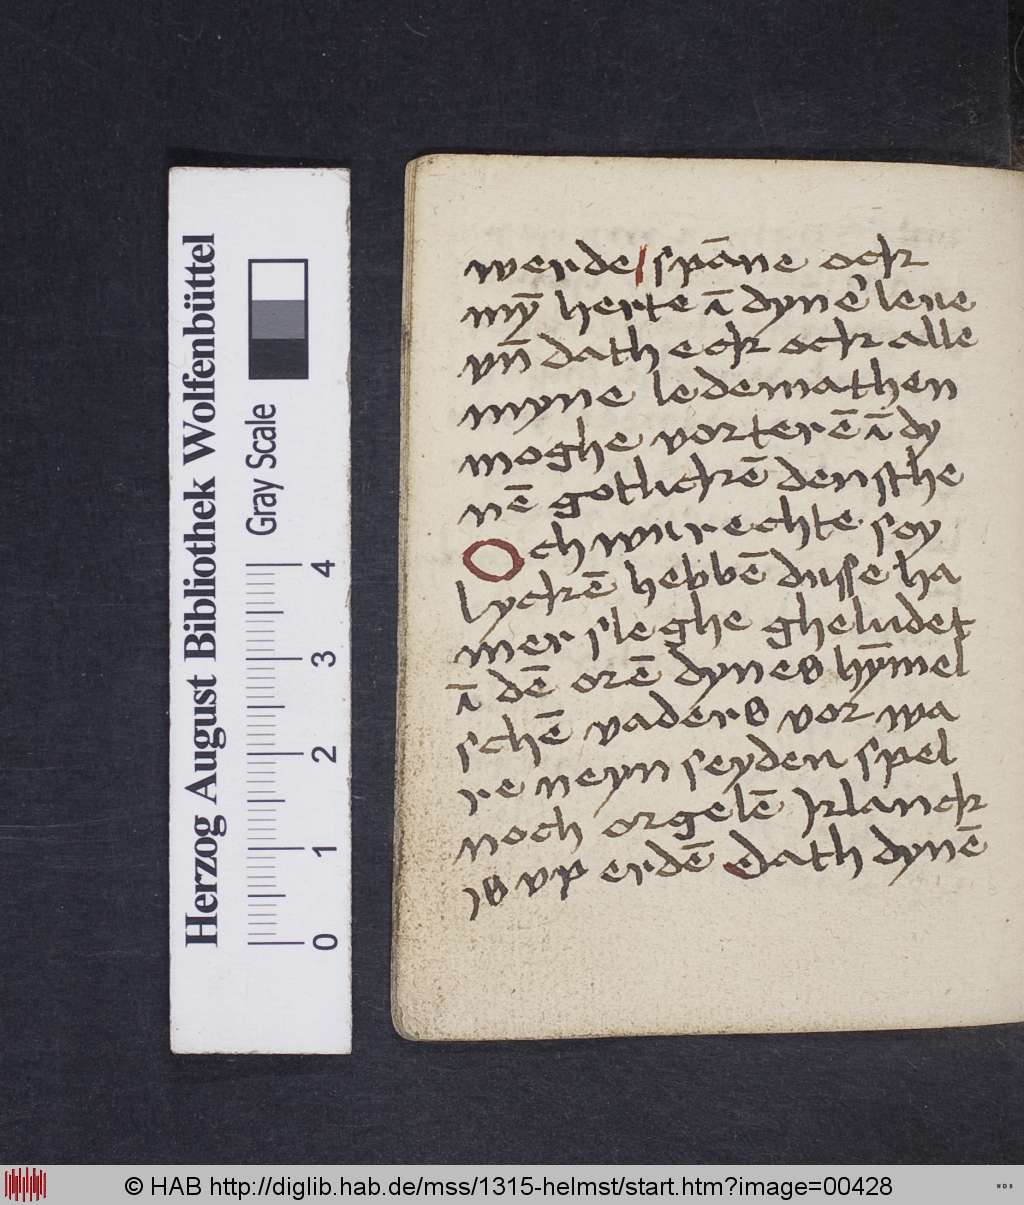 werde / spāne ock
mȳ herte ī dyne' leue
vn̄ dath eck ock alle
myne ledemathen
moghe vorterē ī dy
nē gotlickē densthe
Och wu rechte soy
lyckē hebbē dusse ha
mer sleghe gheludet
ī dē orē dynes hȳmel
schē vaders vor wa
re neyn seyden spel
noch orgelē klanck
is vp erdē dath dynē
Herzog August Bibliothek Wolfenbüttel
Gray Scale
0 1 2 3 4
© HAB http://diglib.hab.de/mss/1315-helmst/start.htm?image=00428